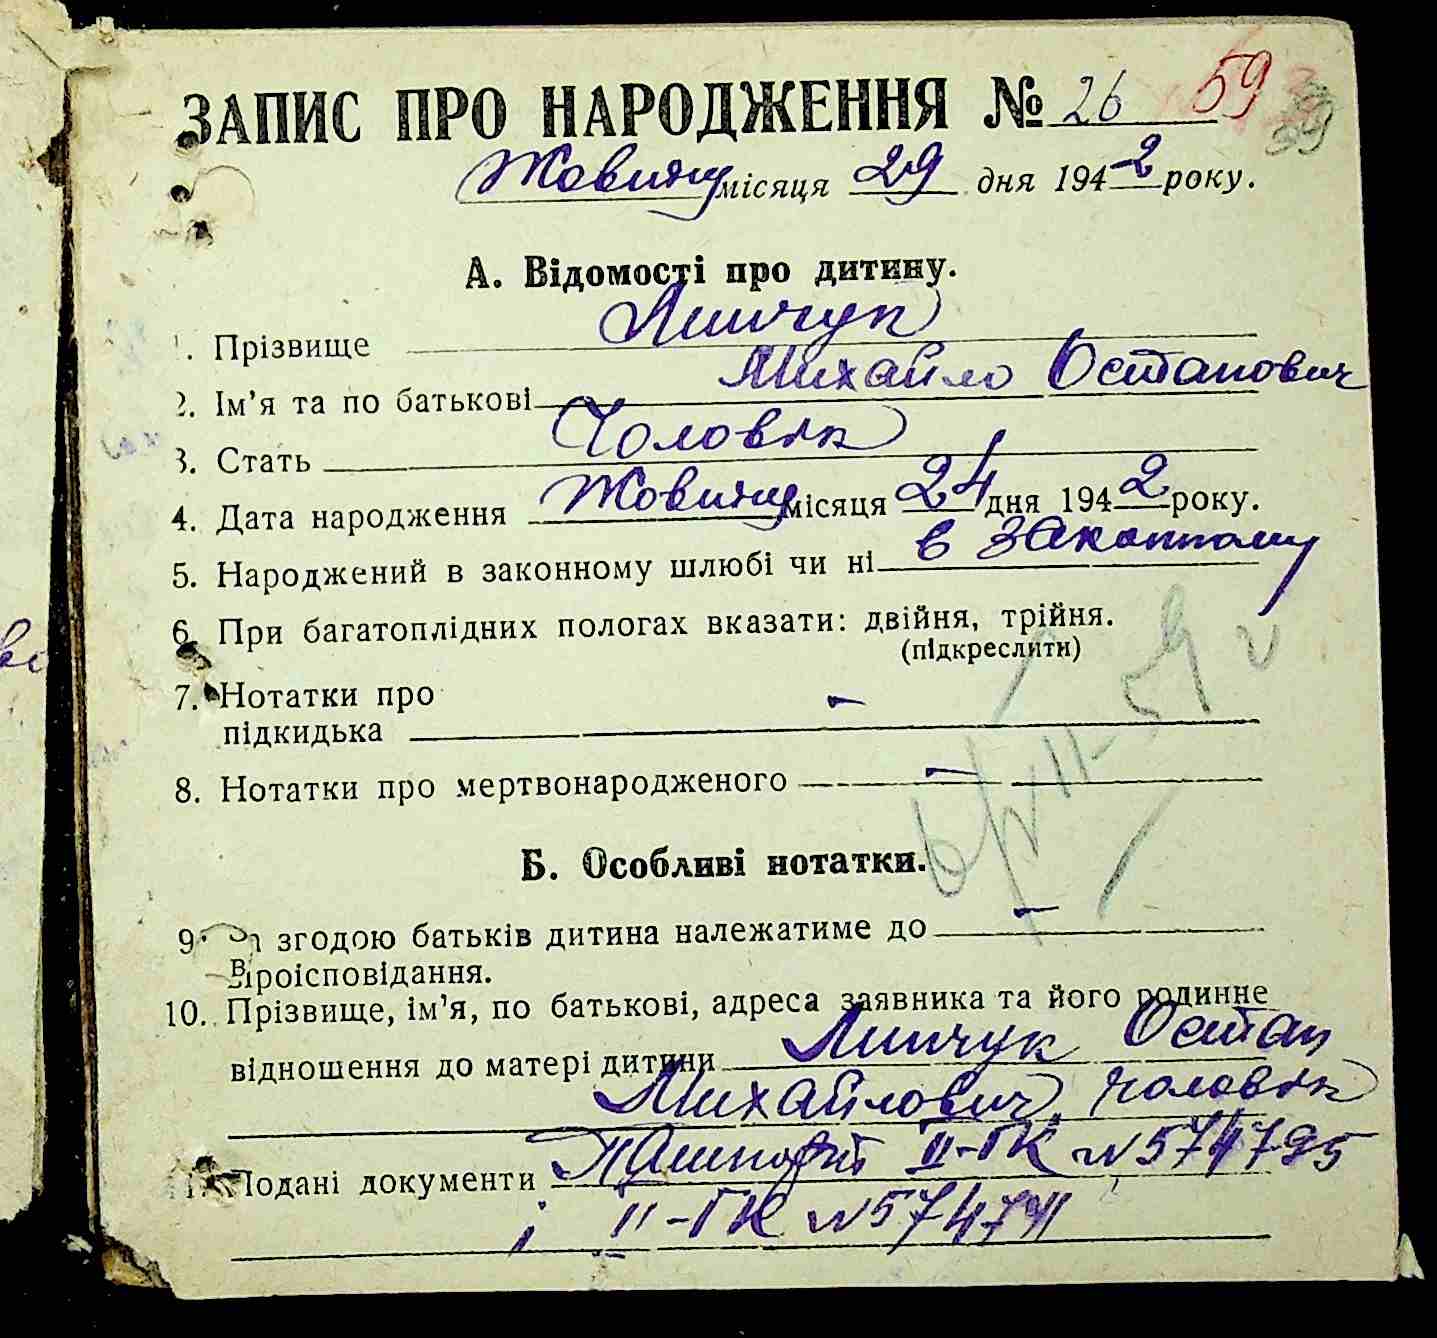 ЗАПИС ПРО НАРОДЖЕННЯ № 26 59
59
Жовтня місяця 29 дня 1942 року.
А. Відомості про дитину.
1. Прізвище Линчук
2. Ім’я та по батькові Михайло Остапович
3. Стать Чоловік
4. Дата народження Жовтня місяця 24 дня 1942 року.
5. Народжений в законному шлюбі чи ні в законному
6. При багатоплідних пологах вказати: двійня, трійня.
(підкреслити)
7. Нотатки про
підкидька -
8. Нотатки про мертвонародженого -
Б. Особливі нотатки.
9. За згодою батьків дитина належатиме до -
віроісповідання.
10. Прізвище, ім’я, по батькові, адреса заявника та його родинне
відношення до матері дитини Линчук Остап
Михайлович, чоловік
11. Подані документи Пашпорт II-ГК № 574795
і II-ГК № 574741